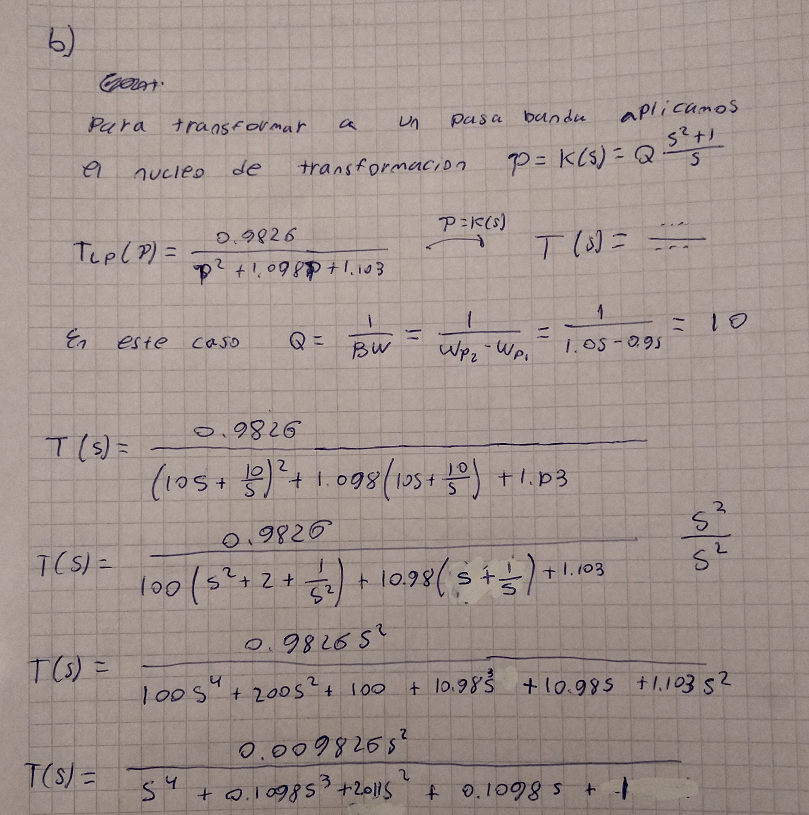 b)
Para transformar a un pasa banda aplicamos
el nucleo de transformacion p = K(s) = Q (s²+1)/s
T_LP(p) = 0.9826 / (p² + 1.098p + 1.103) →(p=K(s)) T(s) = .../...
En este caso Q = 1/BW = 1/(Wp₂ - Wp₁) = 1/(1.05 - 0.95) = 10
T(s) = 0.9826 / ((10s + 10/s)² + 1.098(10s + 10/s) + 1.103)
T(s) = 0.9826 / (100(s² + 2 + 1/s²) + 10.98(s + 1/s) + 1.103) s²/s²
T(s) = 0.9826 s² / (100s⁴ + 200s² + 100 + 10.98s³ + 10.98s + 1.103s²)
T(s) = 0.009826s² / (s⁴ + 0.1098s³ + 2.011s² + 0.1098s + 1)